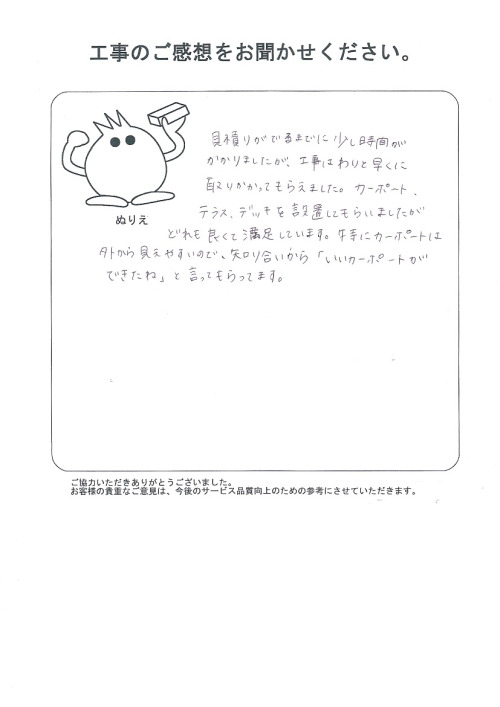 工事のご感想をお聞かせください。
見積りがでるまでに少し時間が
かかりましたが、工事はわりと早くに
取りかかってもらえました。カーポート、
ぬりえ
テラス、デッキを設置してもらいましたが
どれも良くて満足しています。特にカーポートは
外から見えやすいので、知り合いから「いいカーポートが
できたね」と言ってもらってます。
ご協力いただきありがとうございました。
お客様の貴重なご意見は、今後のサービス品質向上のための参考にさせていただきます。